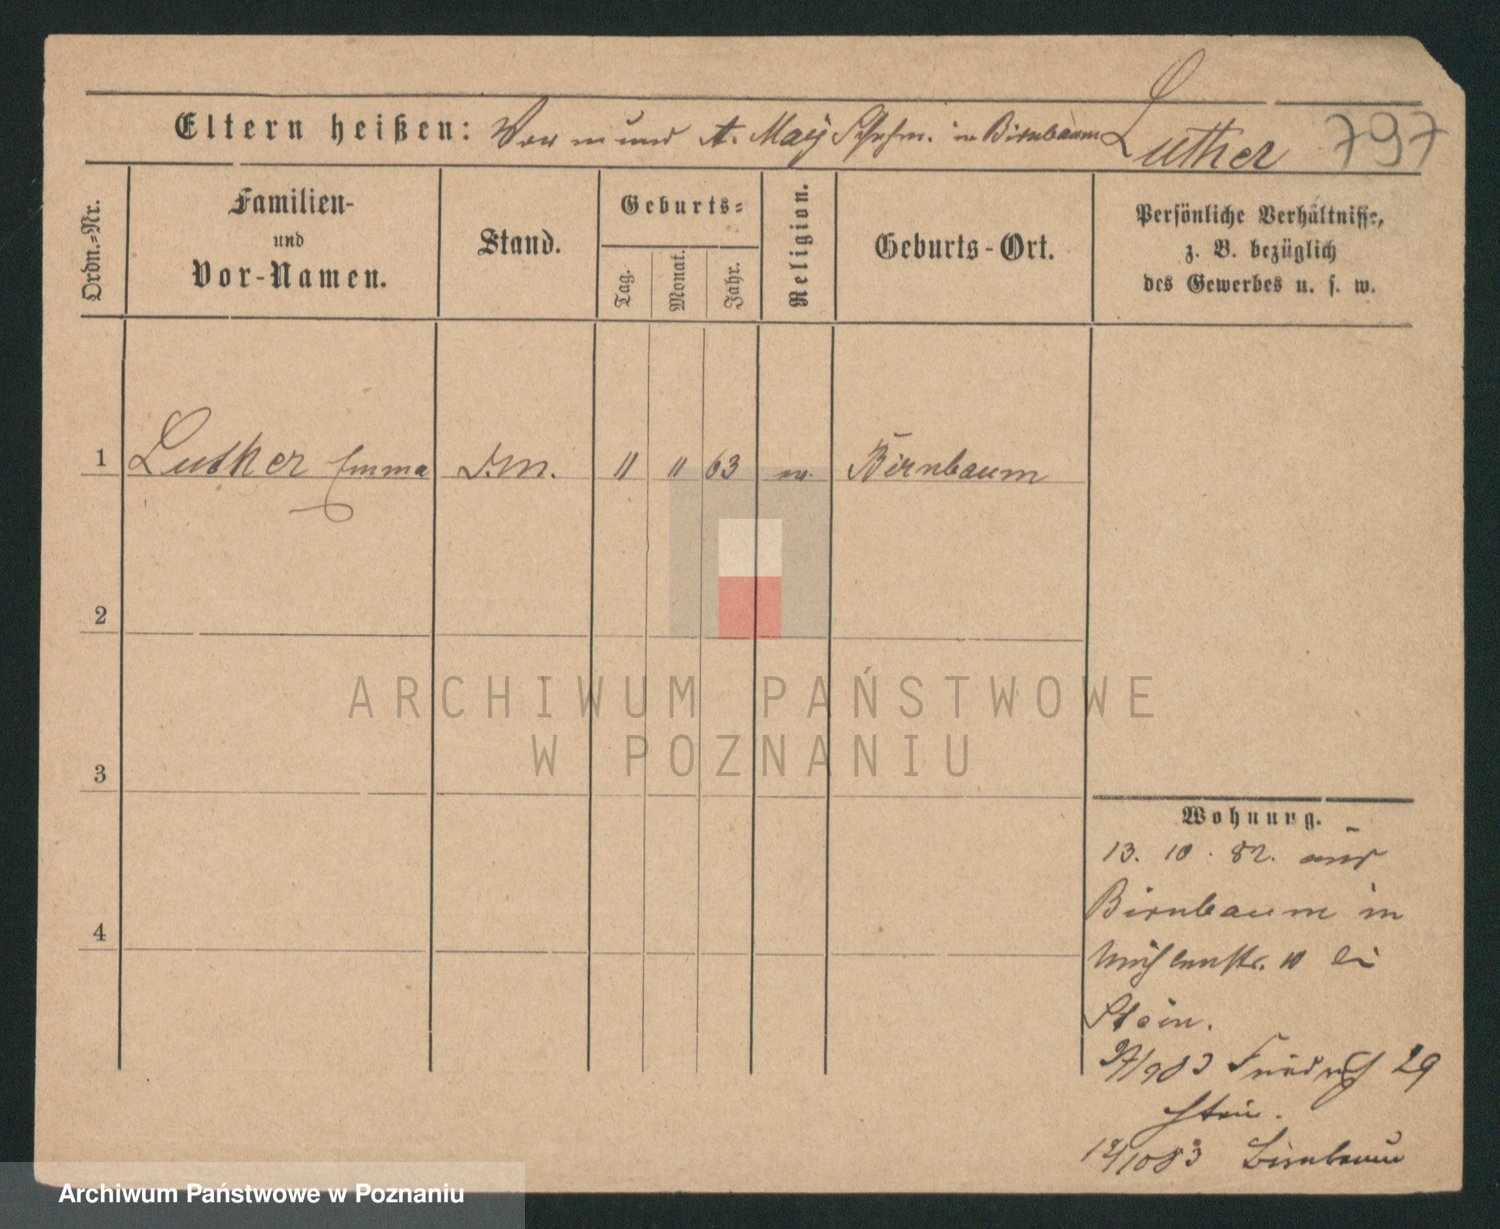 Eltern heißen: Vormund A. May Schuhm. in Birnbaum Luther 797
Ordn.-Nr.
Familien-
und
Vor-Namen.
Stand.
Geburts-
Tag.
Monat.
Jahr.
Religion.
Geburts-Ort.
Persönliche Verhältnisse,
z. B. bezüglich
des Gewerbes u. s. w.
1 Luther Emma D.M. 11 11 63 ev. Birnbaum
2
3
4
Wohnung.
13. 10. 82. aus
Birnbaum in
Mühlenstr. 10 bei
Stein.
27/9 83 Friedrich 29
Stein.
12/10 83 Birnbaum
ARCHIWUM PAŃSTWOWE
W POZNANIU
Archiwum Państwowe w Poznaniu